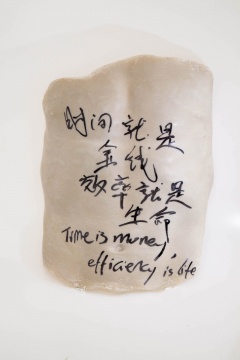 时间就是
金钱
效率就是
生命
Time is money,
efficiency is life